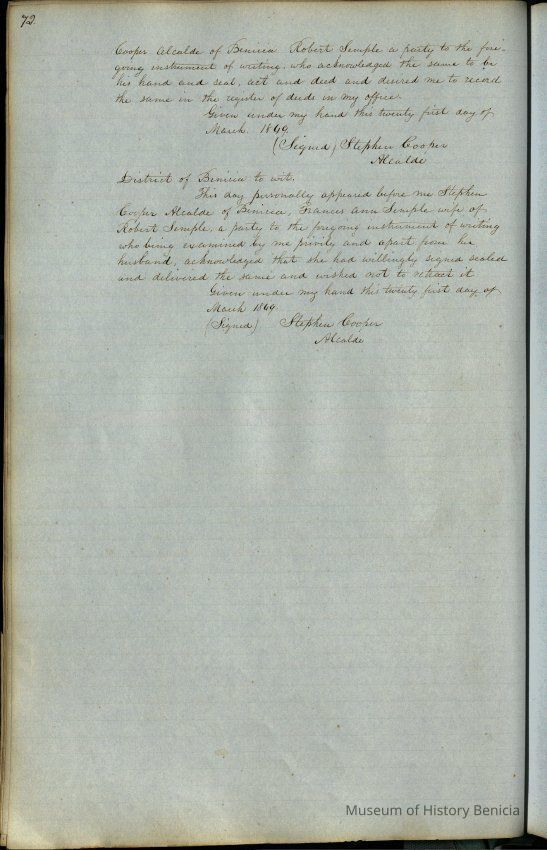 72.
Cooper Alcalde of Benicia Robert Semple a party to the fore-
going instrument of writing, who acknowledged the same to be
his hand and seal, act and deed and desired me to record
the same in the register of deeds in my office.
Given under my hand this twenty first day of
March 1849.
(Signed) Stephen Cooper
Alcalde
District of Benicia to wit.
This day personally appeared before me Stephen
Cooper Alcalde of Benicia, Frances Ann Semple wife of
Robert Semple, a party to the foregoing instrument of writing
who being examined by me privily and apart from her
husband, acknowledged that she had willingly signed sealed
and delivered the same and wished not to retract it
Given under my hand this twenty first day of
March 1849.
(Signed) Stephen Cooper
Alcalde
Museum of History Benicia